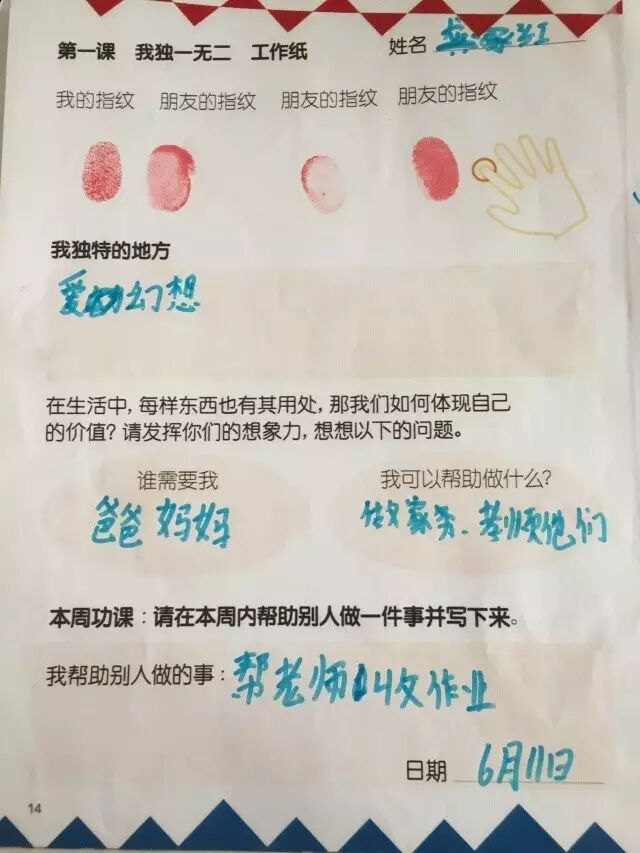 第一课 我独一无二 工作纸 姓名
我的指纹 朋友的指纹 朋友的指纹 朋友的指纹
我独特的地方
爱幻想
在生活中，每样东西也有其用处，那我们如何体现自己
的价值？请发挥你们的想象力，想想以下的问题。
谁需要我 我可以帮助做什么？
爸爸妈妈 做家务、孝顺他们
本周功课：请在本周内帮助别人做一件事并写下来。
我帮助别人做的事：帮老师收作业
日期 6月11日
14